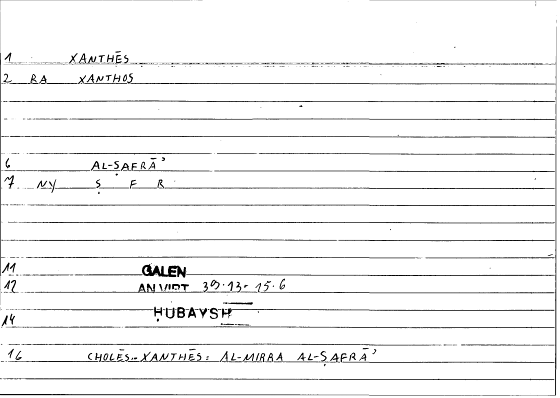 1 XANTHĒS
2 RA XANTHOS
6 AL-ṢAFRĀʾ
7 NY Ṣ F R
11 GALEN
12 AN VIRT 39.13-15.6
14 ḤUBAYSH
16 CHOLĒS..XANTHĒS: AL-MIRRA AL-ṢAFRĀʾ